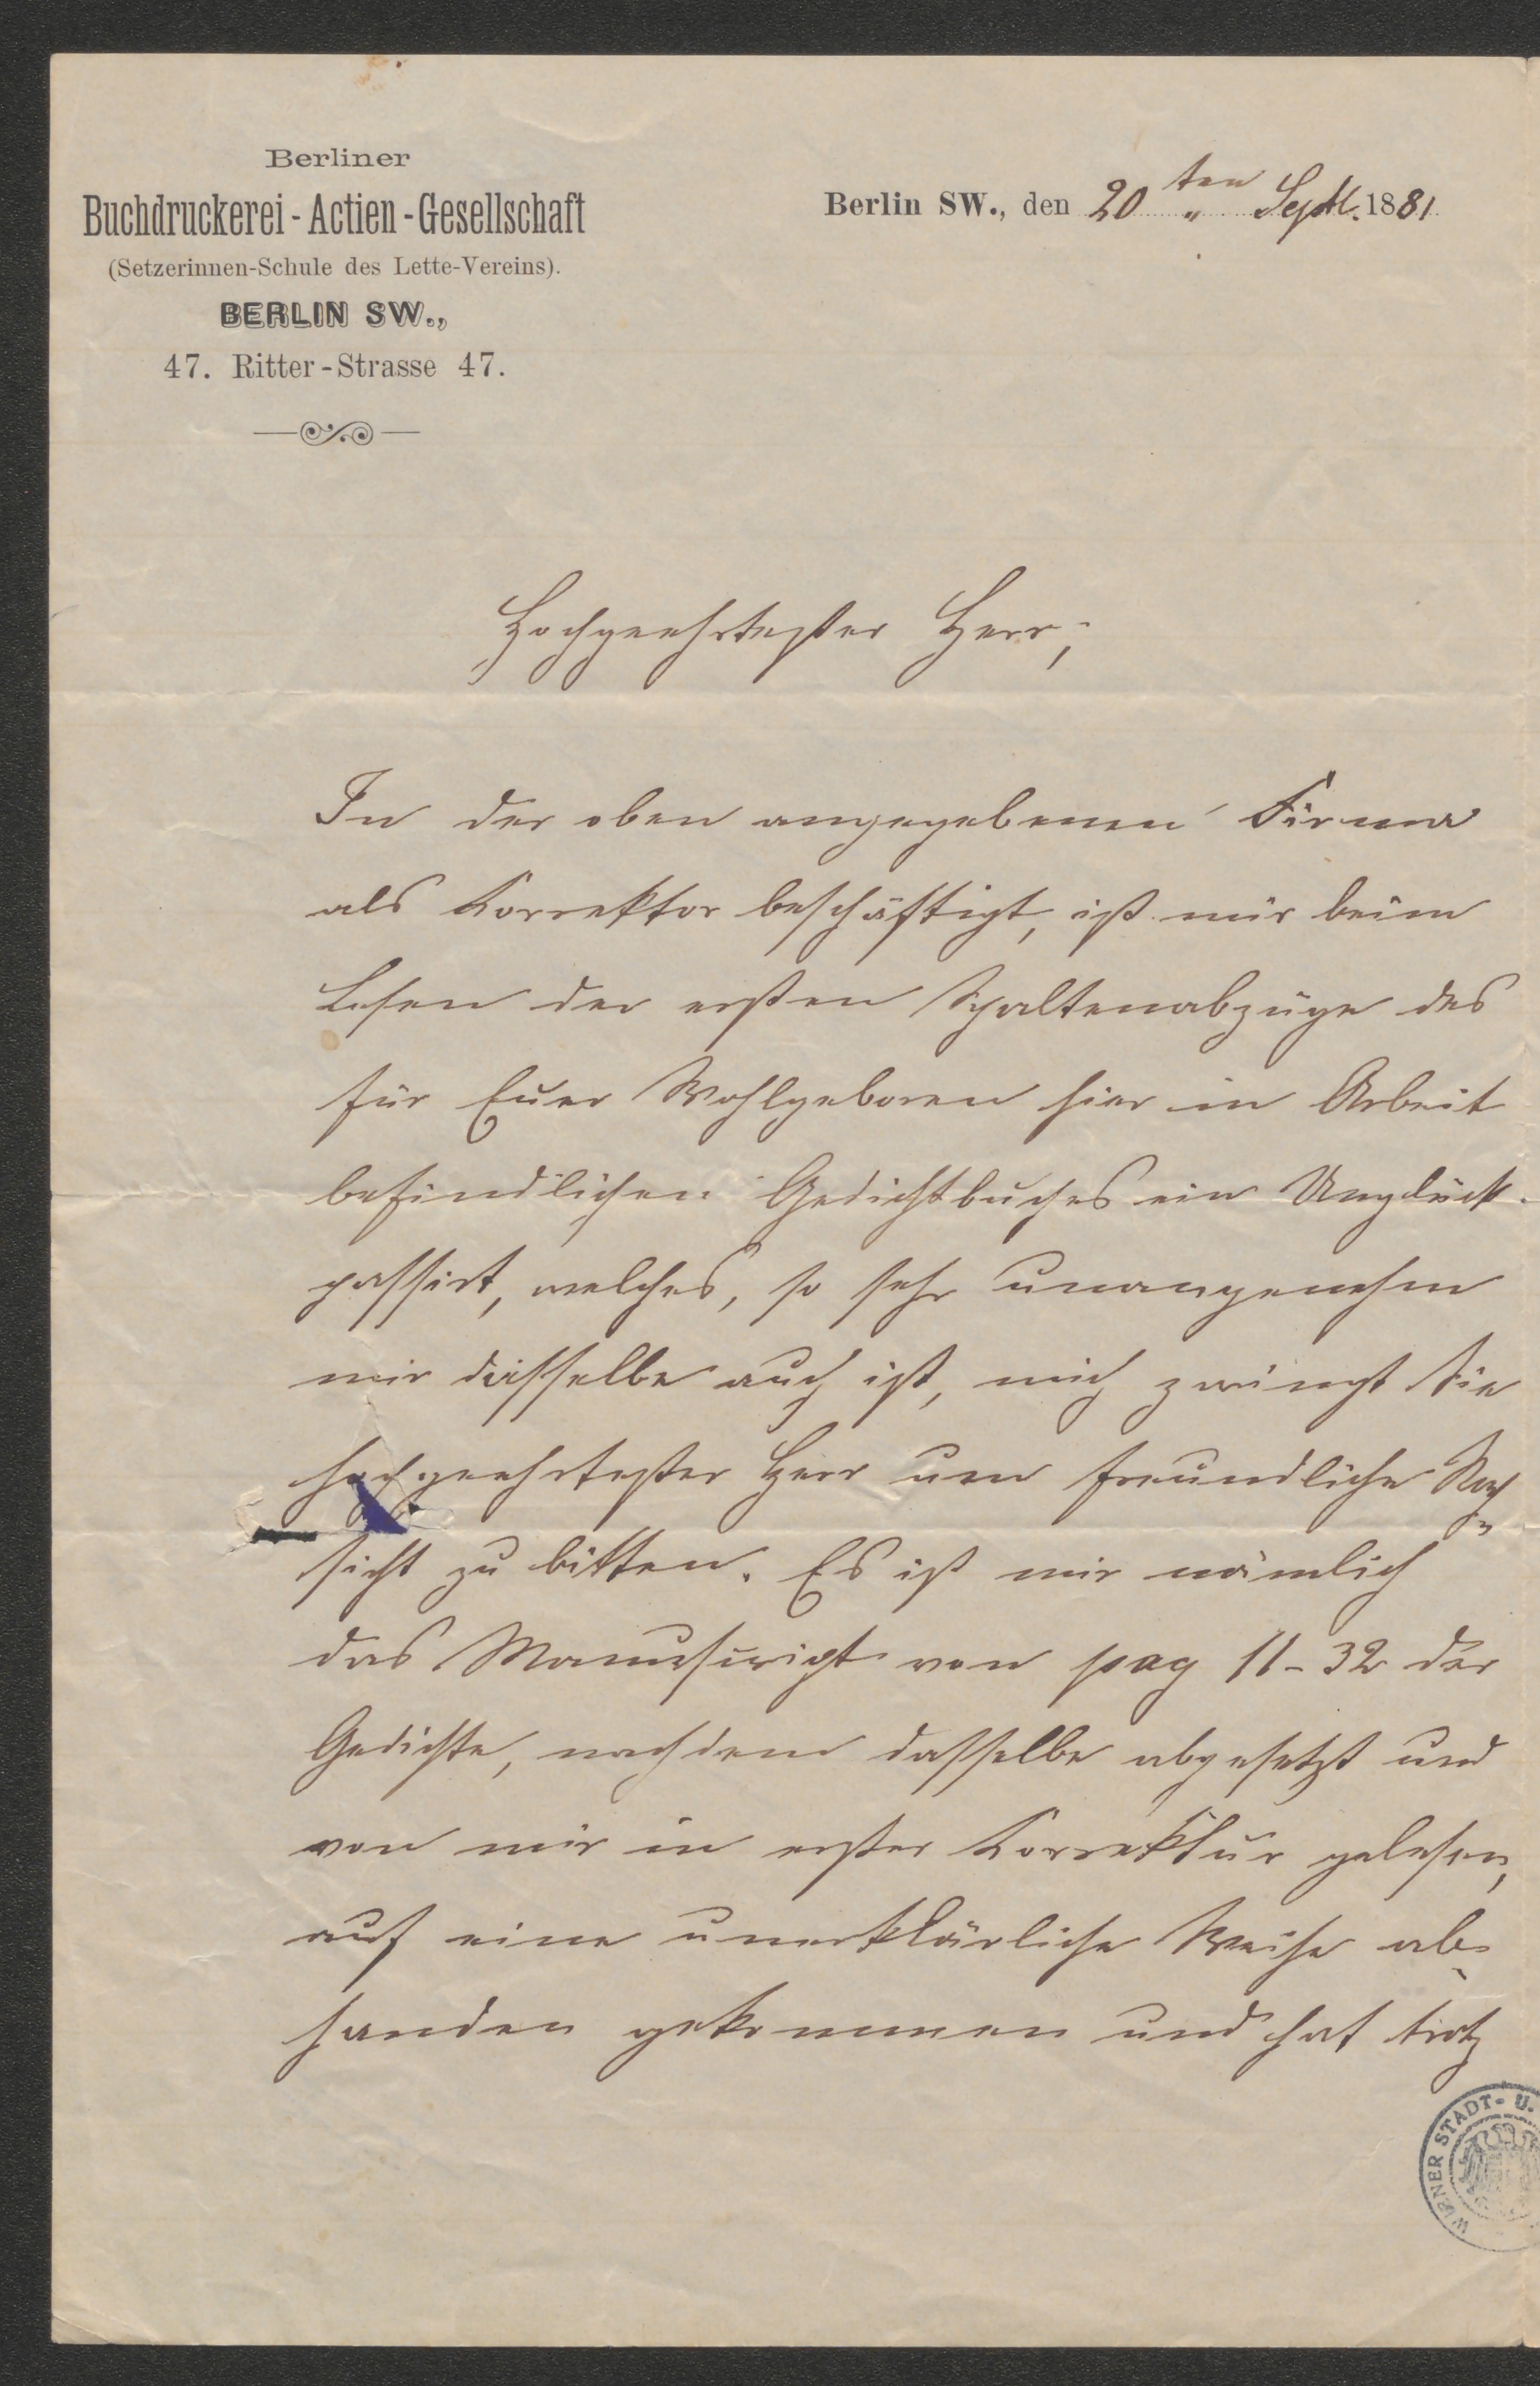 Berliner
Buchdruckerei-Actien-Gesellschaft
(Setzerinnen-Schule des Lette-Vereins).
BERLIN SW.,
47. Ritter-Strasse 47.
Berlin SW., den 20ten " Septl. 1881
Hochgeehrtester Herr;
In der oben angegebenen Firma
als Korrektor beschäftigt, ist mir beim
Lesen der ersten Spaltenabzüge des
für Euer Wohlgeboren hier in Arbeit
befindlichen Gedichtbuches ein Unglück
passirt, welches, so sehr unangenehm
mir dasselbe auch ist, mich zwingt Sie
hochgeehrtester Herr um freundliche Nach-
sicht zu bitten. Es ist mir nämlich
das Manuscript von pag 11-32 der
Gedichte, nachdem dasselbe abgesetzt und
von mir in erster Korrektur gelesen,
auf eine unerklärliche Weise ab-
handen gekommen und hat trotz
WIENER STADT- U.